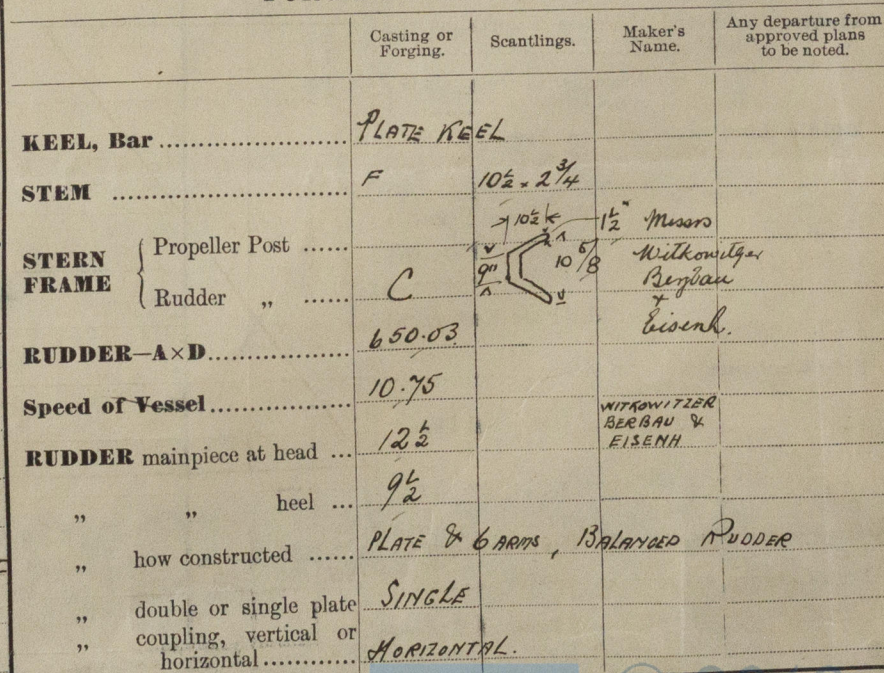 Casting or Forging. Scantlings. Maker's Name. Any departure from approved plans to be noted.
KEEL, Bar ...................... PLATE KEEL
STEM ...................... F 10½ × 2¾
STERN FRAME { Propeller Post ...... 10½ 1½" Messrs
9" 10 5/8 Witkowitzer
{ Rudder „ ...... C Bergbau
+
Eisenh.
RUDDER—A×D ................ 650.03
Speed of Vessel ................ 10.75
WITKOWITZER
BERBAU &
EISENH
RUDDER mainpiece at head ... 12½
„ „ heel ... 9½
„ how constructed ...... PLATE & 6 ARMS, BALANCED RUDDER
„ double or single plate SINGLE
„ coupling, vertical or
horizontal ............ HORIZONTAL.